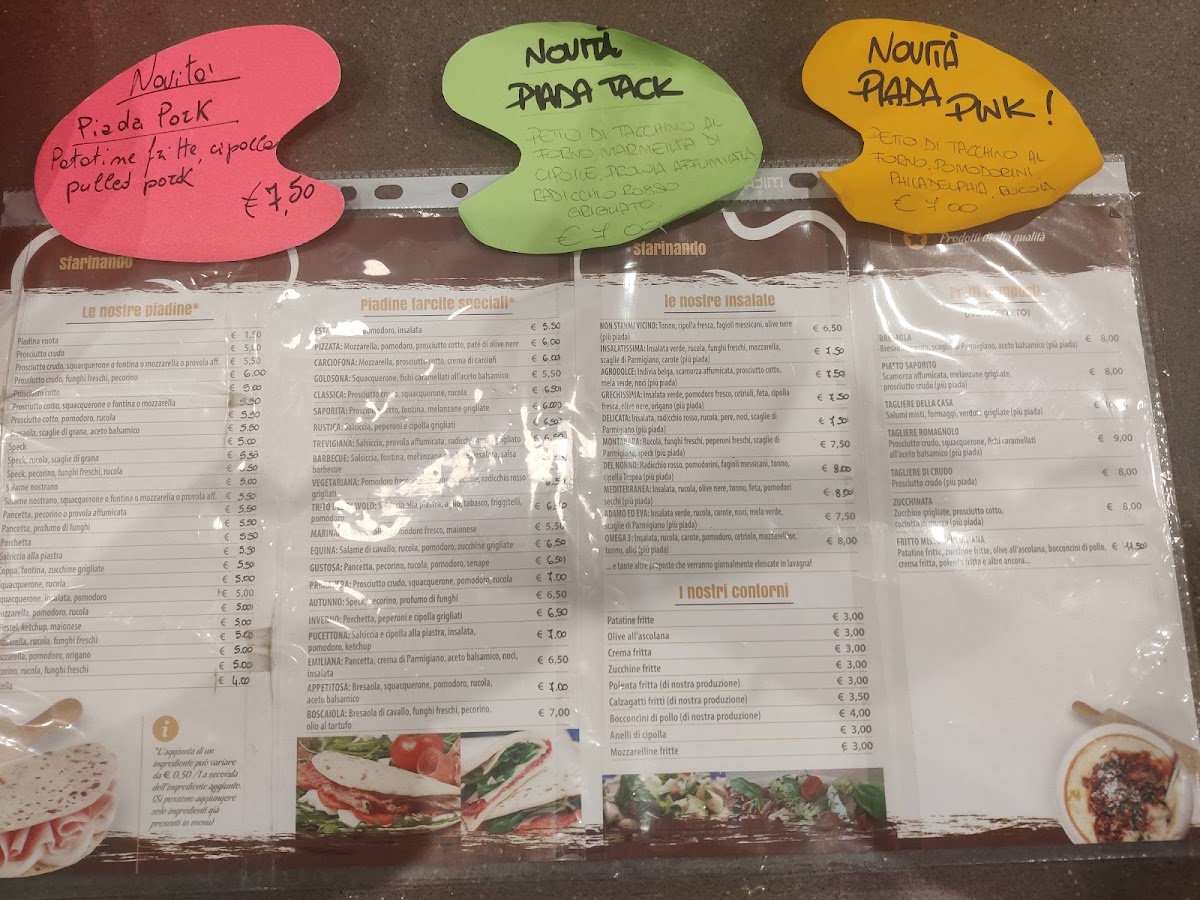 Novita'
Piada Pork
Patatine fritte, cipolla
pulled pork
€ 7,50
NOVITÀ
PIADA TACK
PETTO DI TACCHINO AL
FORNO MARMELLATA DI
CIPOLLE, PROVOLA AFFUMICATA
RADICCHIO ROSSO
GRIGLIATO
€ 7.00
NOVITÀ
PIADA PINK!
PETTO DI TACCHINO AL
FORNO, POMODORINI,
PHILADELPHIA, RUCOLA
€ 7.00
starinando
Le nostre piadine*
Piadina vuota
Prosciutto crudo € 5,00
Prosciutto crudo, squacquerone o fontina o mozzarella o provola aff. € 5,50
Prosciutto crudo, funghi freschi, pecorino € 6.00
Prosciutto cotto € 5.00
Prosciutto cotto, squacquerone o fontina o mozzarella 5.50
Prosciutto cotto, pomodoro, rucola € 5.50
Bresaola, scaglie di grana, aceto balsamico € 5.50
Speck € 5.00
Speck, rucola, scaglie di grana € 5.50
Speck, pecorino, funghi freschi, rucola 5.50
Salame nostrano € 5.00
Salame nostrano, squacquerone o fontina o mozzarella o provola aff. € 5.50
Pancetta, pecorino o provola affumicata € 5.50
Pancetta, profumo di funghi € 5.50
Porchetta € 5.50
Salsiccia alla piastra € 5.50
Coppa, fontina, zucchine grigliate € 5.50
squacquerone, rucola € 5.00
squacquerone, insalata, pomodoro € 5,00
mozzarella, pomodoro, rucola € 5.00
ketchup, maionese € 5.00
rucola, funghi freschi € 5.00
pomodoro, origano € 5.00
rucola, funghi freschi € 5.00
€ 4.00
"L'aggiunta di un
ingrediente può variare
da € 0,50 / 1 a seconda
dell'ingrediente aggiunto.
(Si possono aggiungere
solo ingredienti già
presenti in menù)
Piadine farcite speciali*
pomodoro, insalata € 5.50
PIZZATA: Mozzarella, pomodoro, prosciutto cotto, paté di olive nere € 6.00
CARCIOFONA: Mozzarella, prosciutto cotto, crema di carciofi € 6.00
GOLOSONA: Squacquerone, fichi caramellati all'aceto balsamico € 5,50
CLASSICA: Prosciutto crudo, squacquerone, rucola € 6.50
SAPORITA: Prosciutto cotto, fontina, melanzane grigliate € 6.00
RUSTICA: Salsiccia, peperoni e cipolla grigliati € 6.50
TREVIGIANA: Salsiccia, provola affumicata, radicchio grigliato
BARBECUE: Salsiccia, fontina, melanzana salsa
barbecue
VEGETARIANA: Pomodoro radicchio rosso
grigliati
alla piastra, aglio, tabasco, friggitelli,
pomodoro
MARINA pomodoro fresco, maionese € 5,50
EQUINA: Salame di cavallo, rucola, pomodoro, zucchine grigliate € 6.50
GUSTOSA: Pancetta, pecorino, rucola, pomodoro, senape € 6.50
PRIMAVERA: Prosciutto crudo, squacquerone, pomodoro, rucola € 7.00
AUTUNNO: Speck, pecorino, profumo di funghi € 6,50
INVERNO: Porchetta, peperoni e cipolla grigliati € 6.50
PUCETTONA: Salsiccia e cipolla alla piastra, insalata, € 7.00
pomodoro, ketchup
EMILIANA: Pancetta, crema di Parmigiano, aceto balsamico, noci, € 6,50
insalata
APPETITOSA: Bresaola, squacquerone, pomodoro, rucola, € 7.00
aceto balsamico
BOSCAIOLA: Bresaola di cavallo, funghi freschi, pecorino, € 7,00
olio al tartufo
starinando
le nostre insalate
NON STARMI VICINO: Tonno, cipolla fresca, fagioli messicani, olive nere € 6,50
(più piada)
INSALATISSIMA: Insalata verde, rucola, funghi freschi, mozzarella, € 7.50
scaglie di Parmigiano, carote (più piada)
AGRODOLCE: Indivia belga, scamorza affumicata, prosciutto cotto, € 7.50
mela verde, noci (più piada)
GRECHISSIMA: Insalata verde, pomodoro fresco, cetrioli, feta, cipolla € 7.50
fresca, olive nere, origano (più piada)
DELICATA: Insalata, radicchio rosso, rucola, pere, noci, scaglie di € 7.50
Parmigiano (più piada)
MONTANARA: Rucola, funghi freschi, peperoni freschi, scaglie di € 7,50
Parmigiano, speck (più piada)
DEL NONNO: Radicchio rosso, pomodorini, fagioli messicani, tonno, € 8.00
cipolla Tropea (più piada)
MEDITERRANEA: Insalata, rucola, olive nere, tonno, feta, pomodori € 8.50
secchi (più piada)
ADAMO ED EVA: Insalata verde, rucola, carote, noci, mela verde, € 7,50
scaglie di Parmigiano (più piada)
OMEGA 3: Insalata, rucola, carote, pomodoro, cetriolo, mozzarelline, € 8,00
tonno, alici (più piada)
...e tante altre proposte che verranno giornalmente elencate in lavagna!
I nostri contorni
Patatine fritte € 3,00
Olive all'ascolana € 3,00
Crema fritta € 3,00
Zucchine fritte € 3,00
Polenta fritta (di nostra produzione) € 3,00
Calzagatti fritti (di nostra produzione) € 3,50
Bocconcini di pollo (di nostra produzione) € 4,00
Anelli di cipolla € 3,00
Mozzarelline fritte € 3,00
Prodotti di alta qualità
BRESAOLA
Bresaola, scaglie di Parmigiano, aceto balsamico (più piada) € 8,00
PIATTO SAPORITO
Scamorza affumicata, melanzane grigliate, € 8,00
prosciutto crudo (più piada)
TAGLIERE DELLA CASA
Salumi misti, formaggi, verdure grigliate (più piada) €
TAGLIERE ROMAGNOLO
Prosciutto crudo, squacquerone, fichi caramellati € 9,00
all'aceto balsamico (più piada)
TAGLIERE DI CRUDO
Prosciutto crudo (più piada) € 8,00
ZUCCHINATA
Zucchine grigliate, prosciutto cotto, € 8,00
(più piada)
FRITTO MISTO
Patatine fritte, zucchine fritte, olive all'ascolana, bocconcini di pollo, € 11.50
crema fritta, polenta fritta e altro ancora...